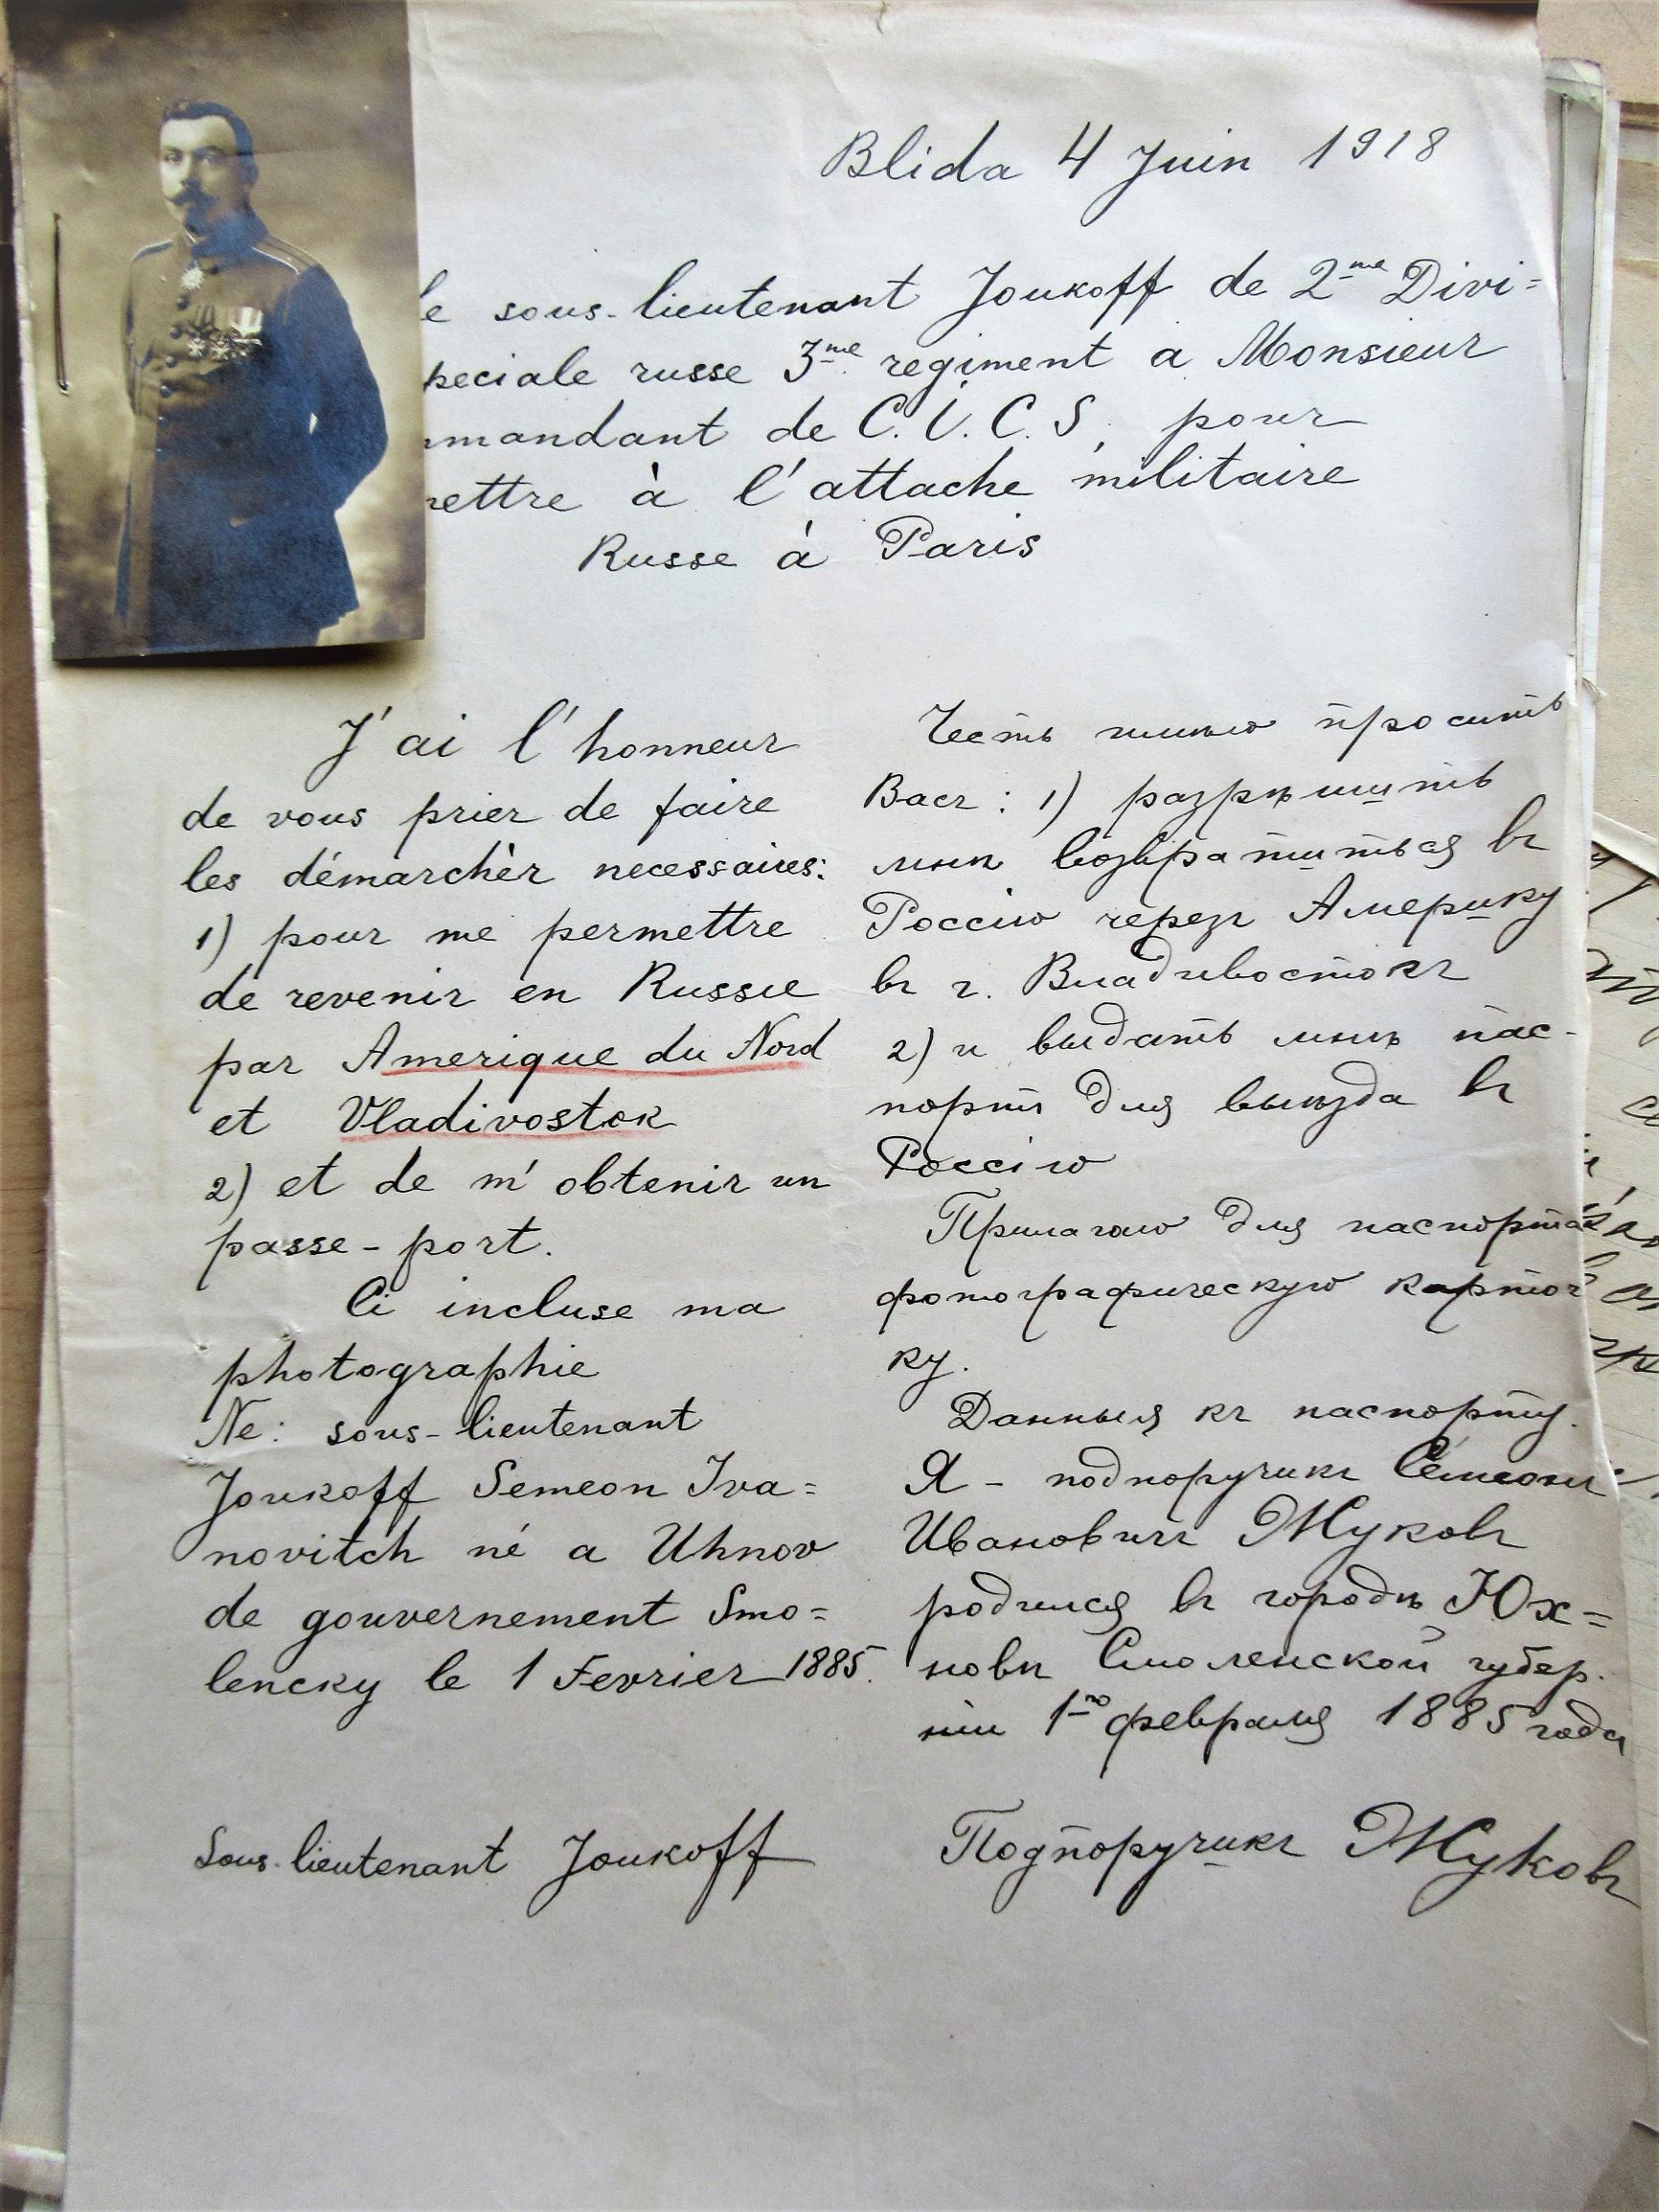 Blida 4 Juin 1918
le sous-lieutenant Joukoff de 2me Divi=
peciale russe 3me regiment a Monsieur
mmandant de C.I.C.S. pour
rettre à l'attache militaire
Russe à Paris
J'ai l'honneur
de vous prier de faire
les démarchèr necessaires:
1) pour me permettre
de revenir en Russie
par Amerique du Nord
et Vladivostok
2) et de m'obtenir un
passe-port.
Ci incluse ma
photographie
Ne: sous-lieutenant
Joukoff Semeon Iva=
novitch né a Uhnov
de gouvernement Smo=
lencky le 1 Fevrier 1885.
Sous-lieutenant Joukoff
Честь имѣю просить
Васъ: 1) разрѣшить
мнѣ возвратиться въ
Россію черезъ Америку
въ г. Владивостокъ
2) и выдать мнѣ пас-
портъ для выѣзда въ
Россію
Прилагаю для паспорта
фотографическую карточ
ку.
Данныя къ паспорту.
Я - подпоручикъ Семеонъ
Ивановичъ Жуковъ
родился въ городѣ Юх=
новѣ Смоленской губер.
ніи 1го февраля 1885 года
Подпоручикъ Жуковъ